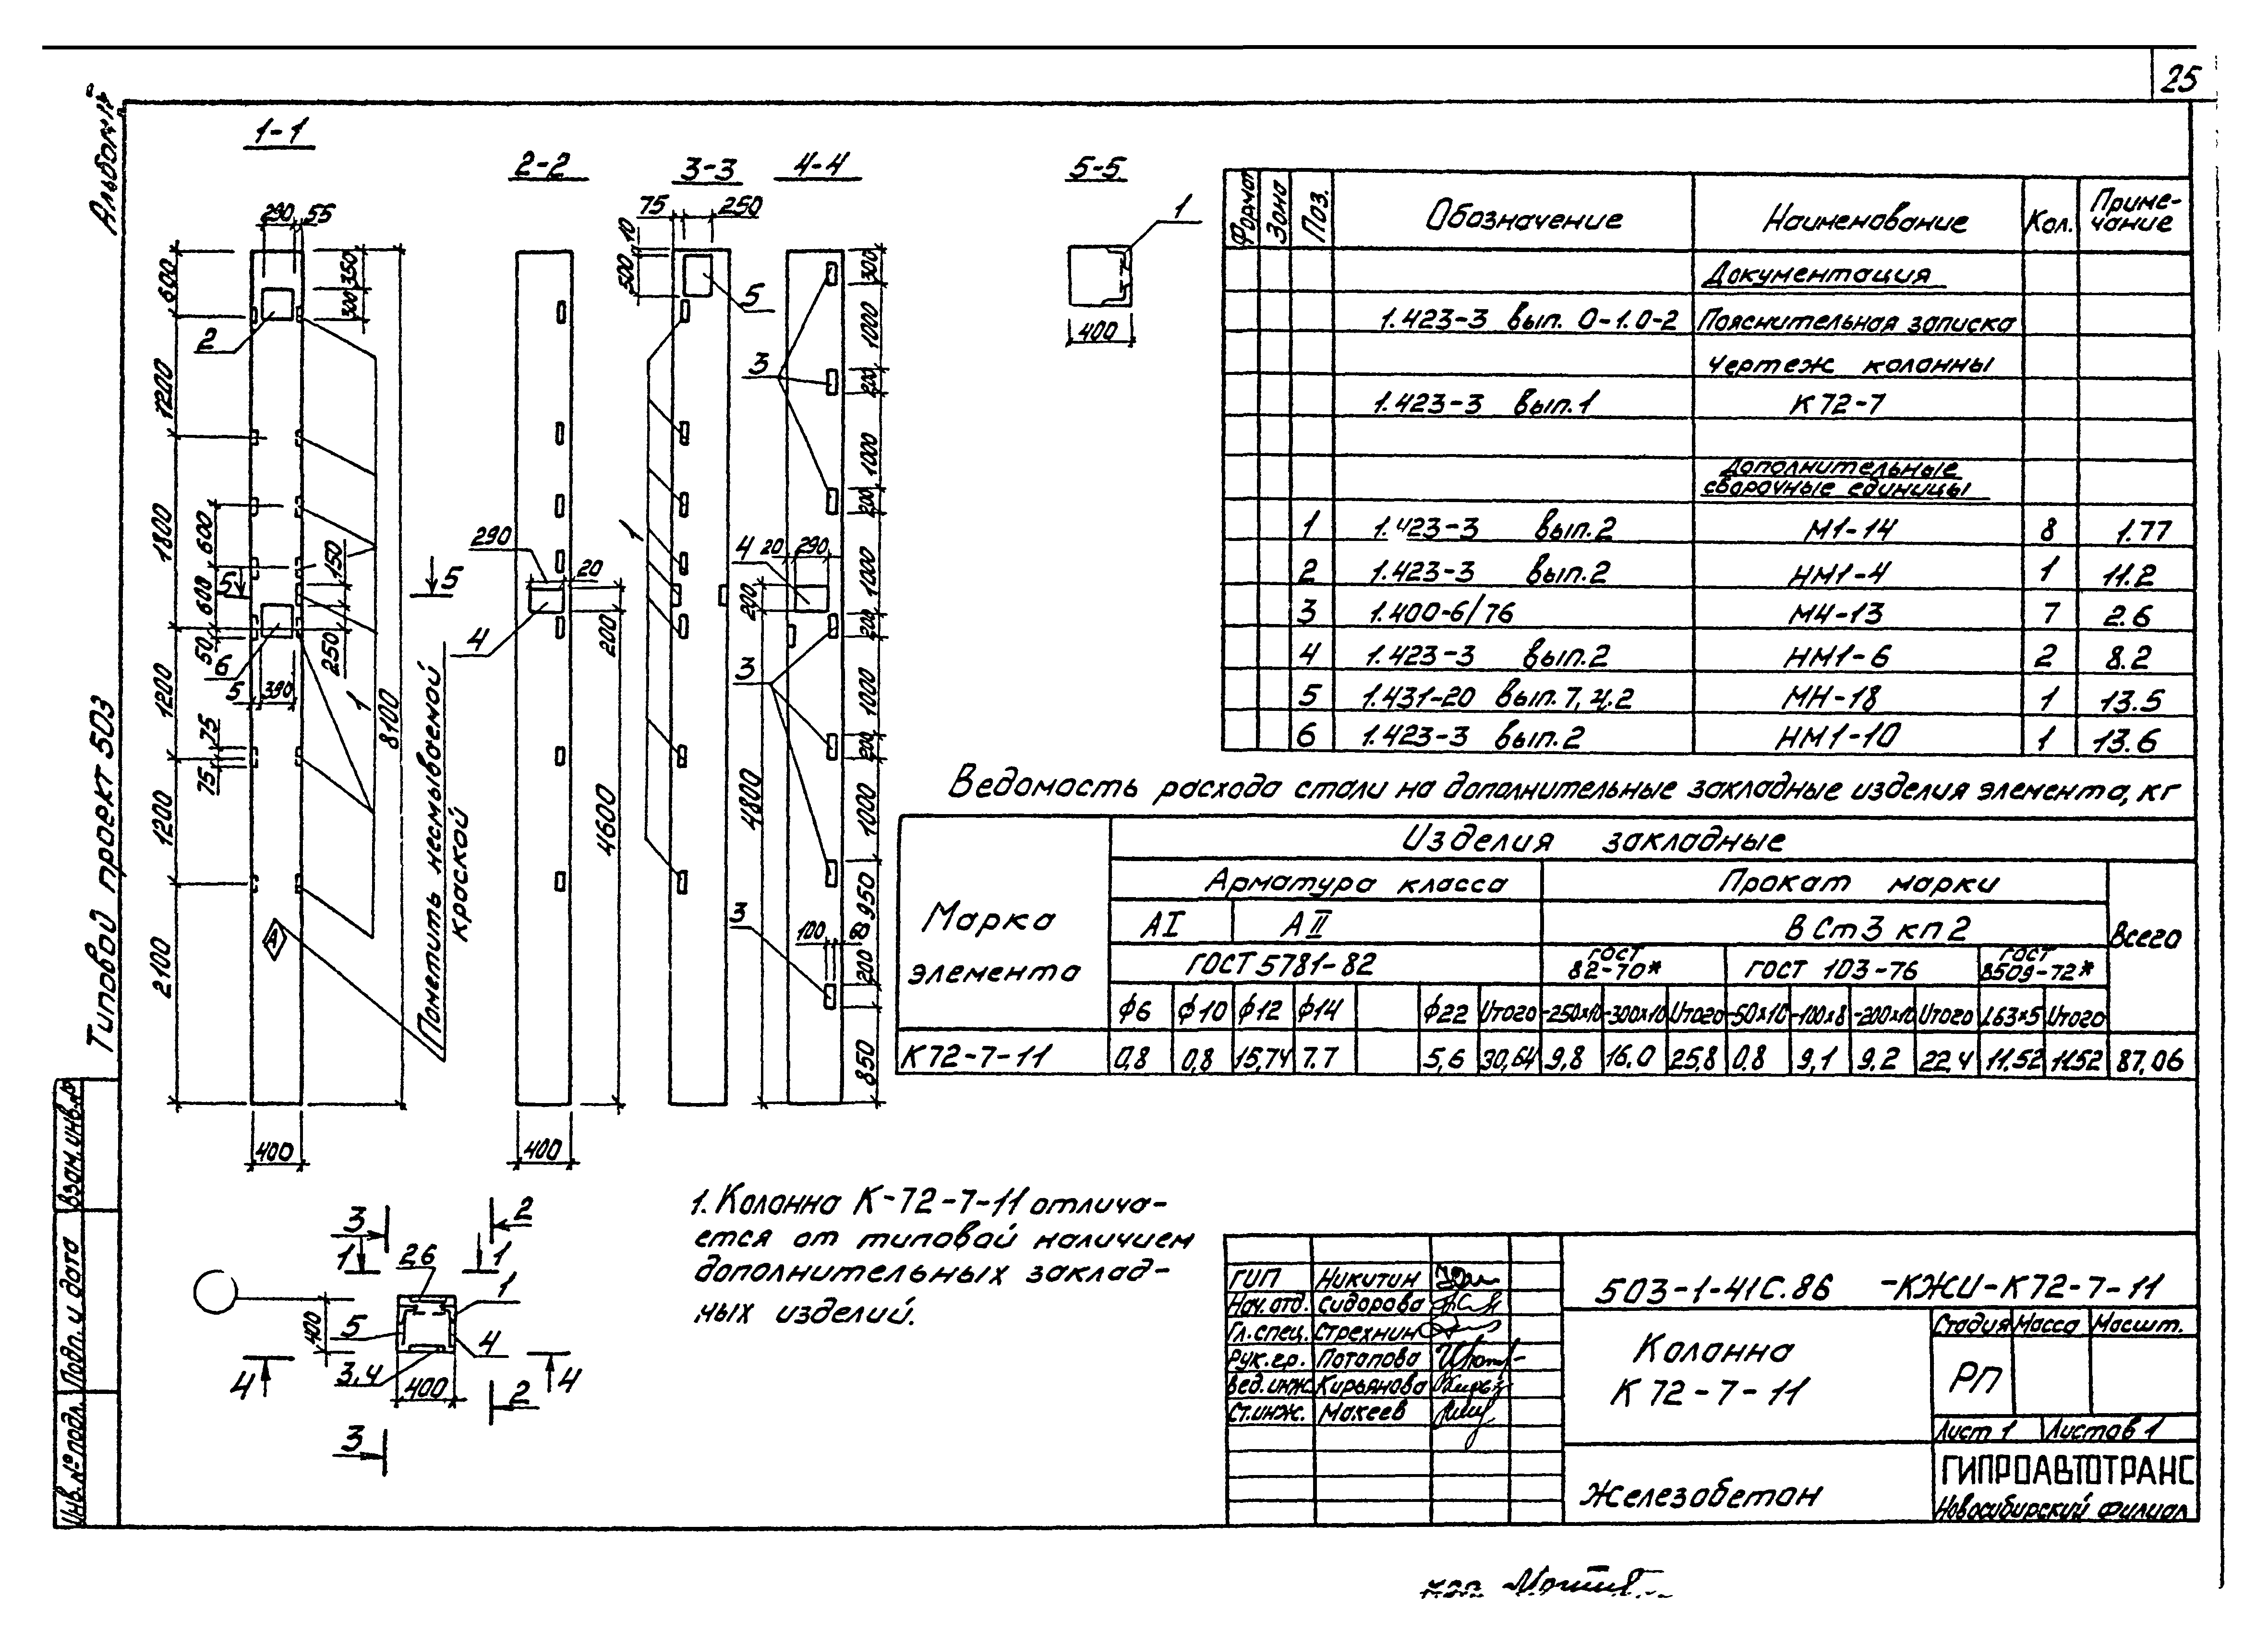 25
Альбом IV
Типовой проект 503
1-1
2-2
3-3
4-4
5-5
290 55
600 350 300
2
1200
1800
600
600
5
150
50
250
6
5 390
1
1200
75
75
1200
2100
8100
А
400
Пометить несмываемой
краской
5
290
20
4
200
4600
400
75 250
10
500
5
1
3
4 20 290
200
3
4800
3
100 60
300
1000
200
1000
200
1000
200
1000
200
1000
950
200
850
1
400
Формат Зона Поз. Обозначение Наименование Кол. Приме-
чание
Документация
1.423-3 вып. 0-1.0-2 Пояснительная записка
Чертеж колонны
1.423-3 вып.1 К72-7
Дополнительные
сборочные единицы
1 1.423-3 вып.2 М1-14 8 1.77
2 1.423-3 вып.2 НМ1-4 1 11.2
3 1.400-6/76 М4-13 7 2.6
4 1.423-3 вып.2 НМ1-6 2 8.2
5 1.431-20 вып.7, ч.2 МН-18 1 13.5
6 1.423-3 вып.2 НМ1-10 1 13.6
Ведомость расхода стали на дополнительные закладные изделия элемента, кг
Марка
элемента
Изделия закладные
Арматура класса Прокат марки
АI АII ВСт3 кп2 Всего
ГОСТ 5781-82 ГОСТ
82-70* ГОСТ 103-76 ГОСТ
8509-72*
ф6 ф10 ф12 ф14 ф22 Итого -250х10 -300х10 Итого -50х10 -100х8 -200х10 Итого L63х5 Итого
К72-7-11 0,8 0,8 15,74 7.7 5,6 30,64 9,8 16.0 25,8 0.8 9,1 9.2 22,4 11.52 11.52 87.06
3 2
1 1
2,6
1
5 4
3,4
400
400
4 4
2
3
1. Колонна К-72-7-11 отлича-
ется от типовой наличием
дополнительных заклад-
ных изделий.
ГИП Никитин
Нач. отд. Сидорова
Гл. спец. Стрехнин
Рук. гр. Потапова
Вед. инж. Кирьянова
Ст. инж. Макеев
503-1-41С.86 -КЖИ-К72-7-11
Колонна
К 72-7-11
Стадия Масса Масшт.
РП
Лист 1 Листов 1
Железобетон
ГИПРОАВТОТРАНС
Новосибирский филиал
Взам. инв. №
Подп. и дата
Инв. № подл.